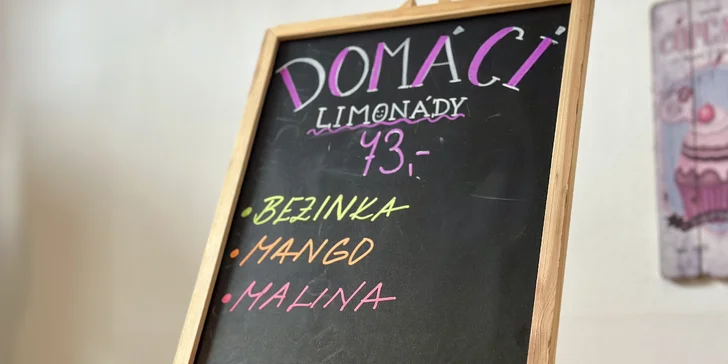 DOMÁCÍ
LIMONÁDY
73,-
• BEZINKA
• MANGO
• MALINA